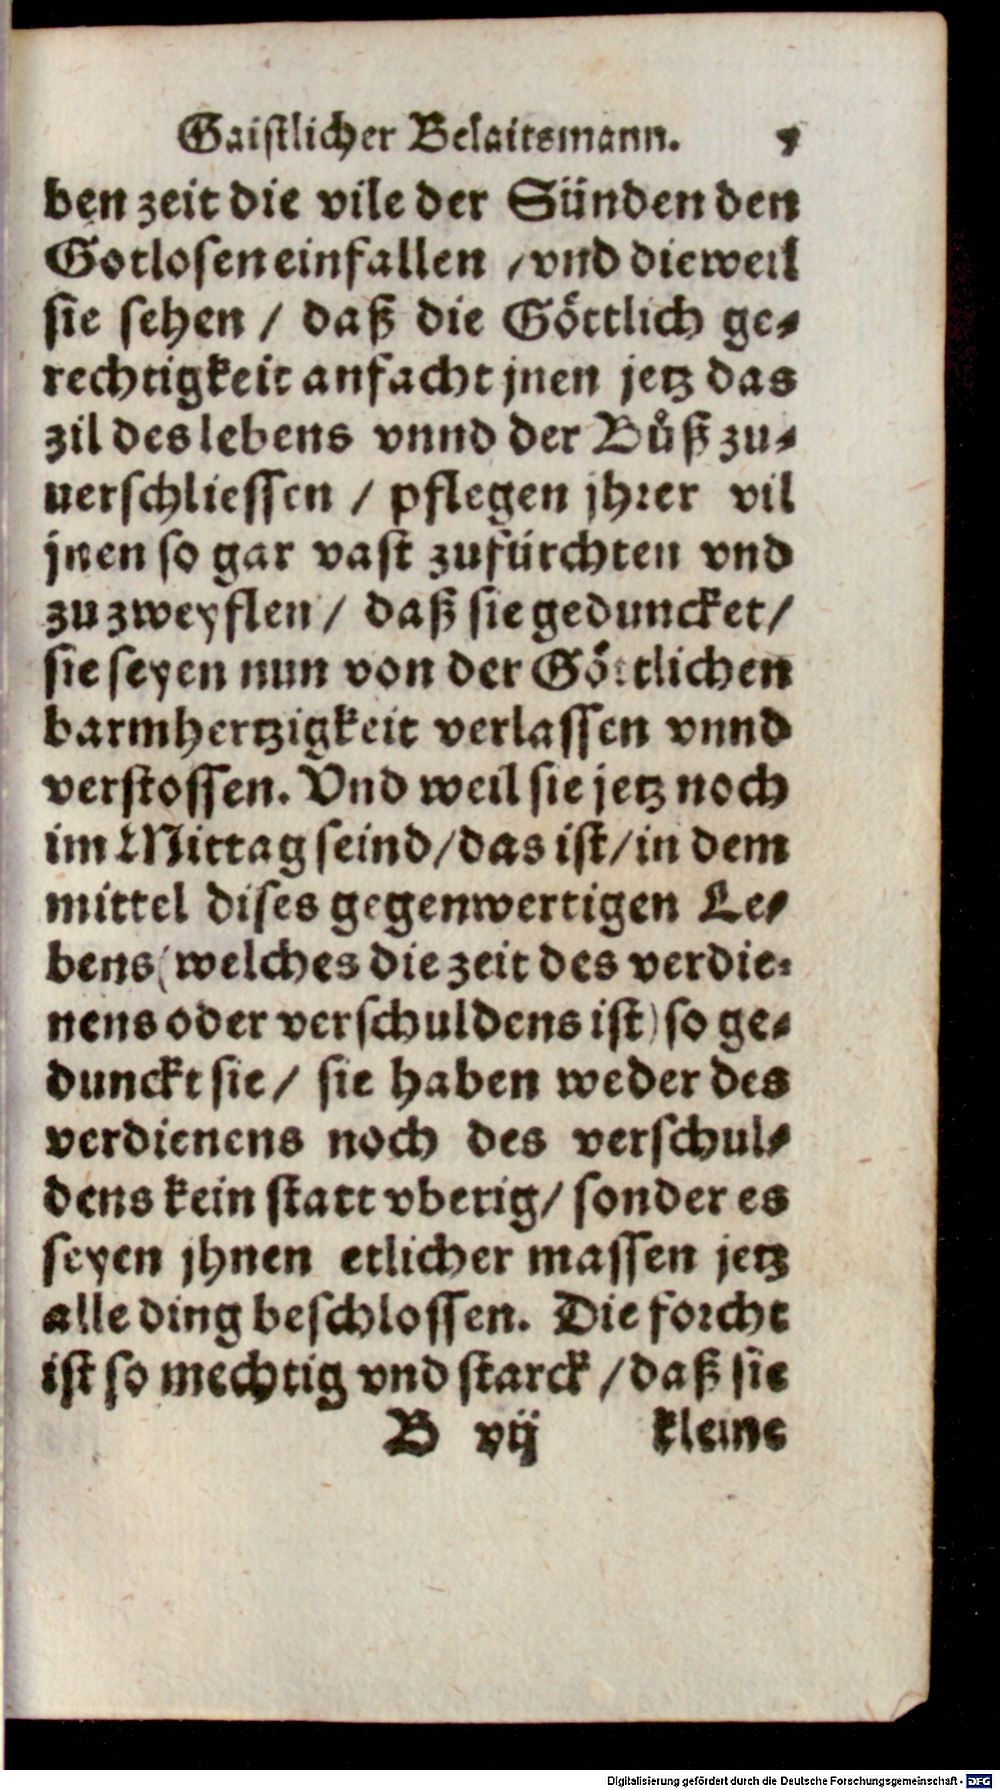 Gaistlicher Belaitsmann. 7
ben zeit die vile der Sünden den
Gotlosen einfallen / vnd dieweil
sie sehen / daß die Göttlich ge-
rechtigkeit anfacht jnen jetz das
zil des lebens vnnd der Bůß zu-
uerschliessen / pflegen jhrer vil
jnen so gar vast zufürchten vnd
zu zweyflen / daß sie geduncket /
sie seyen nun von der Göttlichen
barmhertzigkeit verlassen vnnd
verstossen. Vnd weil sie jetz noch
im Mittag seind / das ist / in dem
mittel dises gegenwertigen Le-
bens (welches die zeit des verdie-
nens oder verschuldens ist) so ge-
dunckt sie / sie haben weder des
verdienens noch des verschul-
dens kein statt vberig / sonder es
seyen jhnen etlicher massen jetz
alle ding beschlossen. Die forcht
ist so mechtig vnd starck / daß sie
B vij kleine
Digitalisierung gefördert durch die Deutsche Forschungsgemeinschaft - DFG